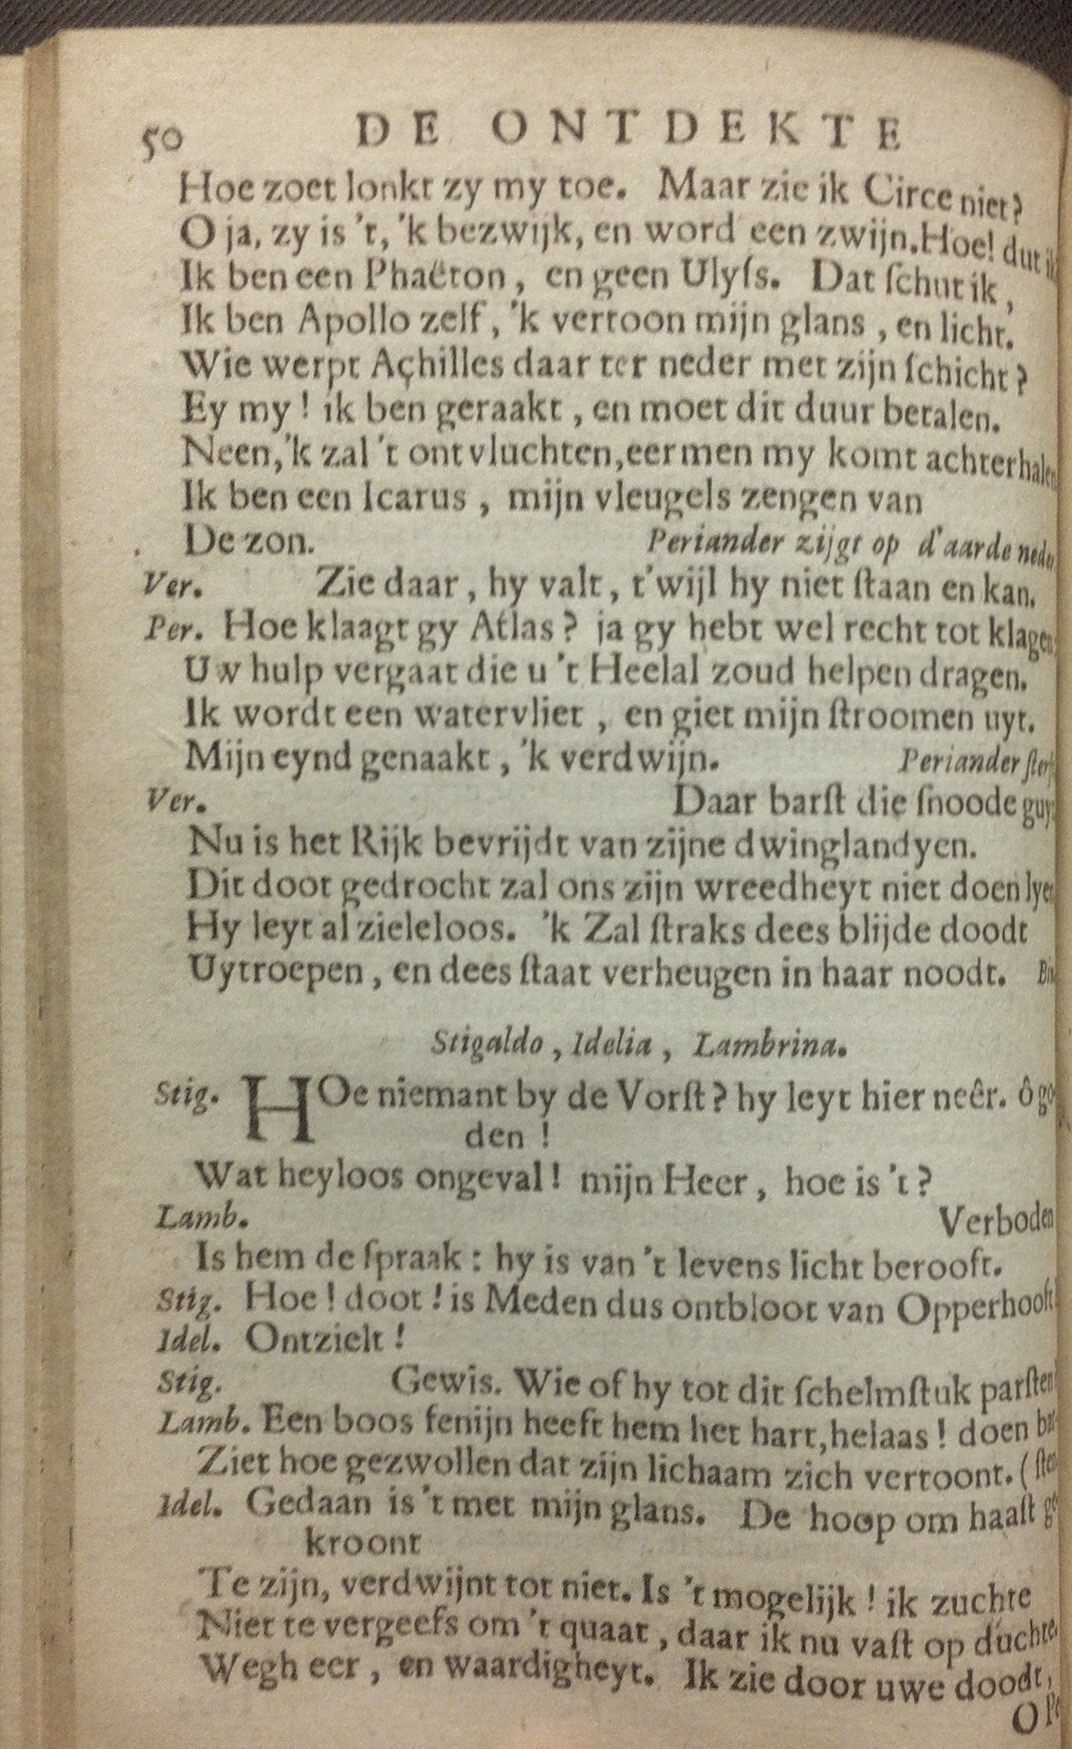 50 DE ONTDEKTE
Hoe zoet lonkt zy my toe. Maar zie ik Circe niet?
O ja, zy is 't, 'k bezwijk, en word een zwijn. Hoe! dut ik
Ik ben een Phaëton, en geen Ulyſs. Dat ſchut ik,
Ik ben Apollo zelf, 'k vertoon mijn glans, en licht.
Wie werpt Açhilles daar ter neder met zijn ſchicht?
Ey my! ik ben geraakt, en moet dit duur betalen.
Neen, 'k zal 't ontvluchten, eermen my komt achterhalen
Ik ben een Icarus, mijn vleugels zengen van
De zon. Periander zijgt op d'aarde neder
Ver. Zie daar, hy valt, t'wijl hy niet ſtaan en kan.
Per. Hoe klaagt gy Atlas? ja gy hebt wel recht tot klagen
Uw hulp vergaat die u 't Heelal zoud helpen dragen.
Ik wordt een watervliet, en giet mijn ſtroomen uyt.
Mijn eynd genaakt, 'k verdwijn. Periander ſterft
Ver. Daar barſt die ſnoode guyt
Nu is het Rijk bevrijdt van zijne dwinglandyen.
Dit doot gedrocht zal ons zijn wreedheyt niet doen lyen
Hy leyt al zieleloos. 'k Zal ſtraks dees blijde doodt
Uytroepen, en dees ſtaat verheugen in haar noodt.
Stigaldo, Idelia, Lambrina.
Stig. HOe niemant by de Vorſt? hy leyt hier neêr. ô go
den!
Wat heyloos ongeval! mijn Heer, hoe is 't?
Lamb. Verboden
Is hem de ſpraak: hy is van 't levens licht berooft.
Stig. Hoe! doot! is Meden dus ontbloot van Opperhooft
Idel. Ontzielt!
Stig. Gewis. Wie of hy tot dit ſchelmſtuk parſten
Lamb. Een boos fenijn heeft hem het hart, helaas! doen bar
Ziet hoe gezwollen dat zijn lichaam zich vertoont. (ſten
Idel. Gedaan is 't met mijn glans. De hoop om haaſt ge
kroont
Te zijn, verdwijnt tot niet. Is 't mogelijk! ik zuchte
Niet te vergeefs om 't quaat, daar ik nu vaſt op duchte,
Wegh eer, en waardigheyt. Ik zie door uwe doodt,
O